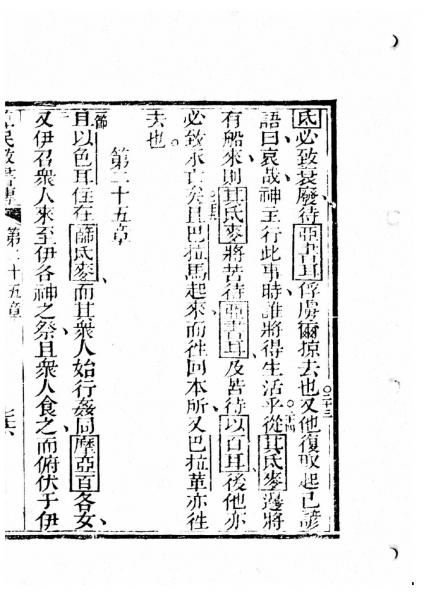 氐必致衰廢待亞書耳俘虜爾掠去也又他復取起已諺
二十三
語曰哀哉神主行此事時誰將得生活乎從其氐麥邊將
二十四
有船來則其氐麥將苦待亞書耳及苦待以百耳後他亦
必致永亡矣且巴拉馬起來而徃囘本所又巴拉革亦徃
去也
第二十五章
一節
且以色耳住在篩氐麥而其衆人始行姦同摩亞百各女
又伊召衆人來至伊各神之祭且衆人食之而俯伏于伊
第二十五章